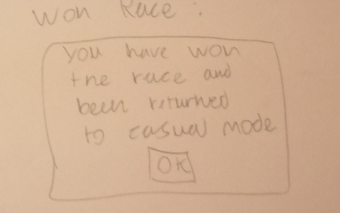 Won Race :
You have won
the race and
been returned
to casual mode
OK